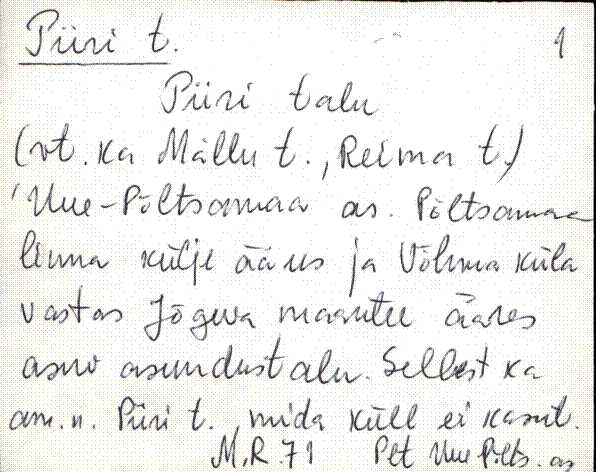 Piiri t. 1
Piiri talu
(vt. ka Mällu t., Reima t.)
'Uue-Põltsamaa as. Põltsamaa
linna külje ääres ja Võhma küla
vastas Jõgeva maantee ääres
asuv asundustalu. Sellest ka
am.n. Piiri t., mida küll ei kasut.
M.R. 71 Plt Uue Põlts. as